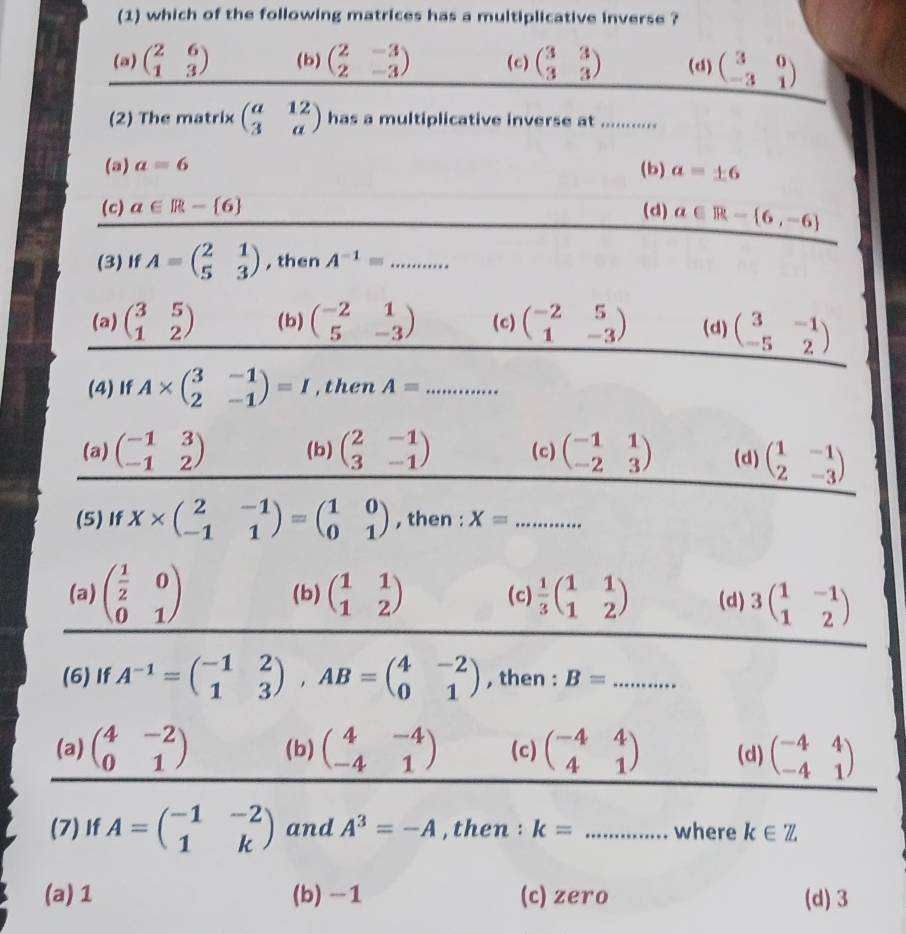 (1) which of the following matrices has a multiplicative inverse ?
(a) (2 6; 1 3) (b) (2 −3; 2 −3) (c) (3 3; 3 3) (d) (3 0; −3 1)
(2) The matrix (a 12; 3 a) has a multiplicative inverse at ...........
(a) a = 6 (b) a = ±6
(c) a ∈ ℝ − {6} (d) a ∈ ℝ − {6 , −6}
(3) If A = (2 1; 5 3) , then A⁻¹ = ...........
(a) (3 5; 1 2) (b) (−2 1; 5 −3) (c) (−2 5; 1 −3) (d) (3 −1; −5 2)
(4) If A × (3 −1; 2 −1) = I , then A = .............
(a) (−1 3; −1 2) (b) (2 −1; 3 −1) (c) (−1 1; −2 3) (d) (1 −1; 2 −3)
(5) If X × (2 −1; −1 1) = (1 0; 0 1) , then : X = ............
(a) (1/2 0; 0 1) (b) (1 1; 1 2) (c) 1/3 (1 1; 1 2) (d) 3 (1 −1; 1 2)
(6) If A⁻¹ = (−1 2; 1 3) , AB = (4 −2; 0 1) , then : B = ...........
(a) (4 −2; 0 1) (b) (4 −4; −4 1) (c) (−4 4; 4 1) (d) (−4 4; −4 1)
(7) If A = (−1 −2; 1 k) and A³ = −A , then : k = .............. where k ∈ ℤ
(a) 1 (b) −1 (c) zero (d) 3